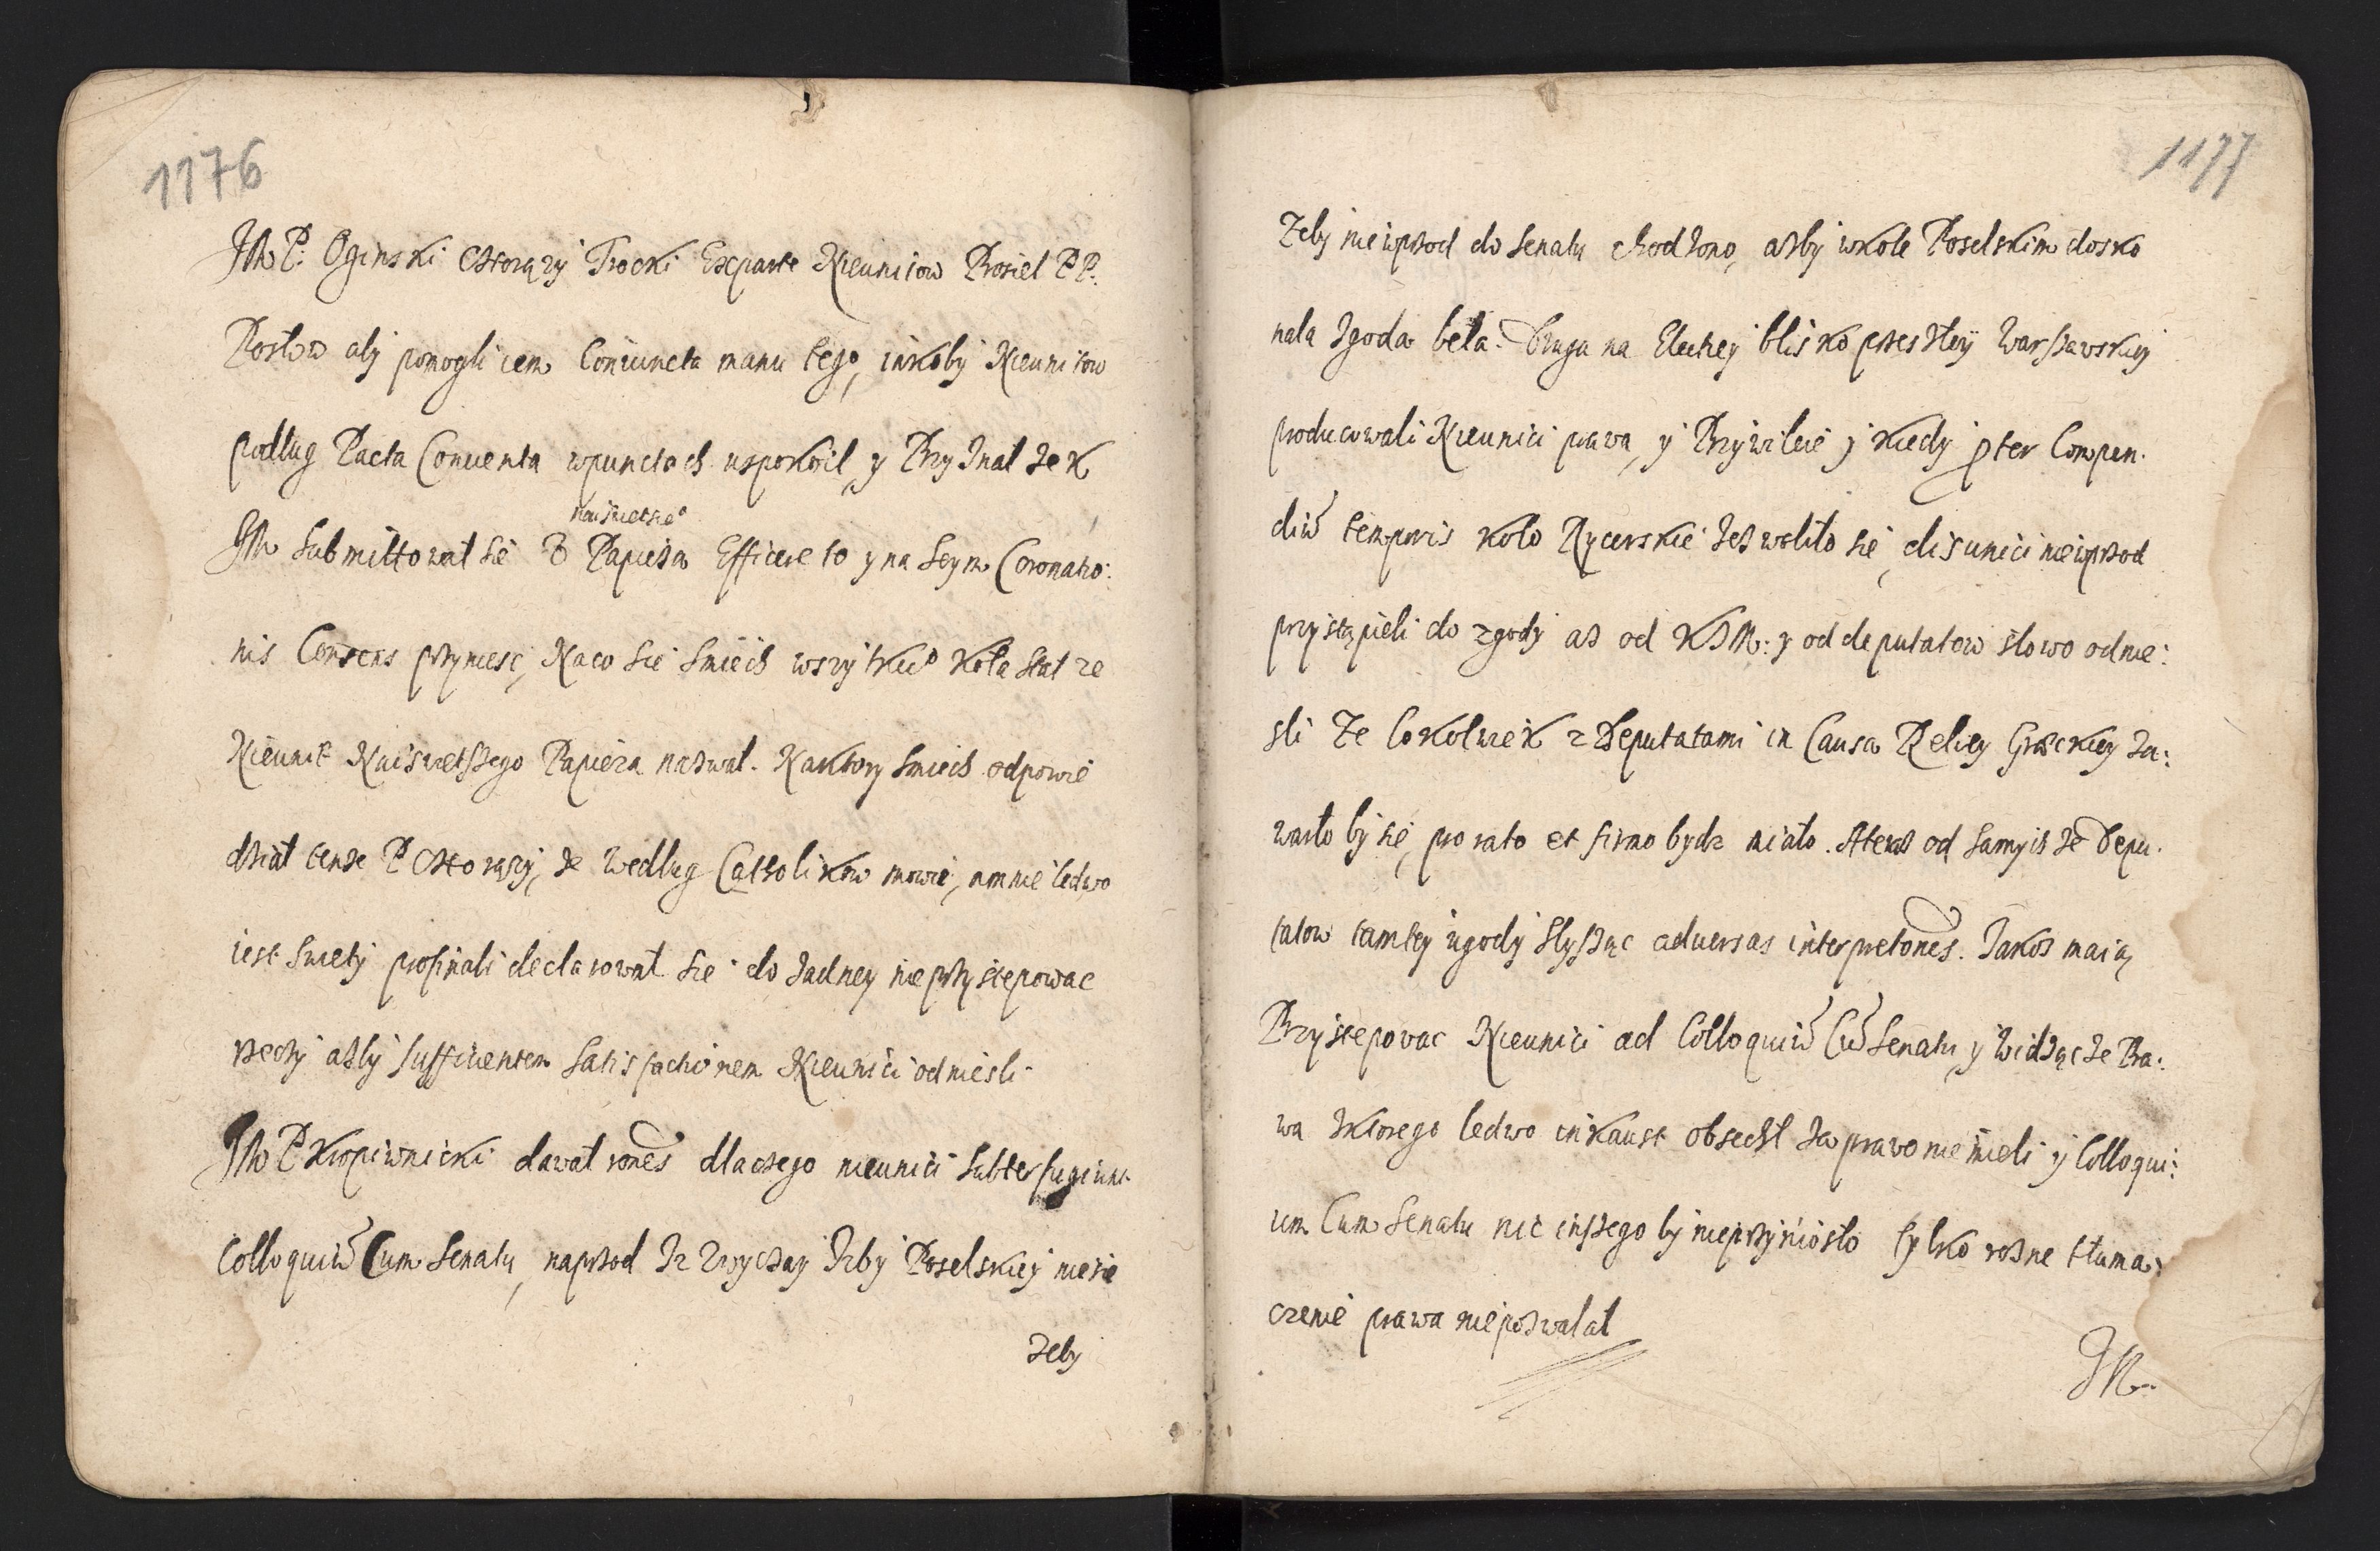 1176
JM P. Oginski Chorązy Trocki Exparte Nieunitow Prosiel PP.
Posłow aby pomogli iem Coniuncta manu tego, iakoby Nieunitow
podlug Pacta Conventa wpunctach uspokoił, y Przyznał że K
naiswetsze°
JM submittował sie v Papieża Efficere to y na Seym Coronatio:
nis Consens przyniesc, Naco sie smiech wszytkie° koła stał ze
Nieunit Naiswetszego Papieża nazwał. Naktory smiech odpowie
dział tenże P Chorązy, że według Catholikow mowie, a mnie ledwo
iest swety prosinali declarował sie do żadney nieprzystepowac
rzeczy ażby sufficientem satisfactionem Nieunici odniesli.
JM P Kropiwnicki dawał rones dlaczego nieunici subterfugiunt
Colloquiu Cum Senatu, naprzod Iz zwyczay Izby Poselskiey niesie
żeby
1177
Zeby niewprzod do senatu chodzono, ażby wkole Poselskim dosko
nala zgoda beła. Druga na Electiey blisko przeszłey Warszawskiey
producowali Nieunici prawa, y Przywileie y kiedy pter Compen.
diu temporis koło Rycerskie zezwoliło sie, disunici niewprzod
przystąpieli do zgody aż od KJM: y od deputatow słowo odnie:
sli Ze Cokolwiek z Deputatami in Causa Reliey Greckiey Za:
warło by sie, pro rato et firmo bydz miało. Ateraz od samych że Depu.
tatow tamtey ugody słysząc adversas interpretones. Jakoż maią
Przystepowac Nieunici ad Colloquiu Cu Senatu, y Widząc że Pra:
wa zktorego ledwo inkaust obsechł za prawo nie mieli y Colloqui:
um Cum Senatu nic inszego by nieprzyniosło tylko rożne tłuma:
czenie prawa niepozwalał
JM